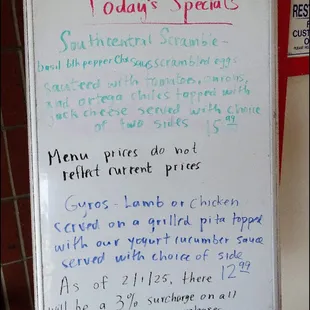 Today's Specials
Southcentral Scramble -
basil blk pepper Chx saus scrambled eggs
sauteed with tomatoes, onions,
and ortega chiles topped with
jack cheese served with choice
of two sides 15.99
Menu prices do not
reflect current prices
Gyros - Lamb or Chicken
served on a grilled pita topped
with our yogurt cucumber sauce
served with choice of side
12.99
As of 2/1/25, there
will be a 3% surcharge on all
REST
CUST